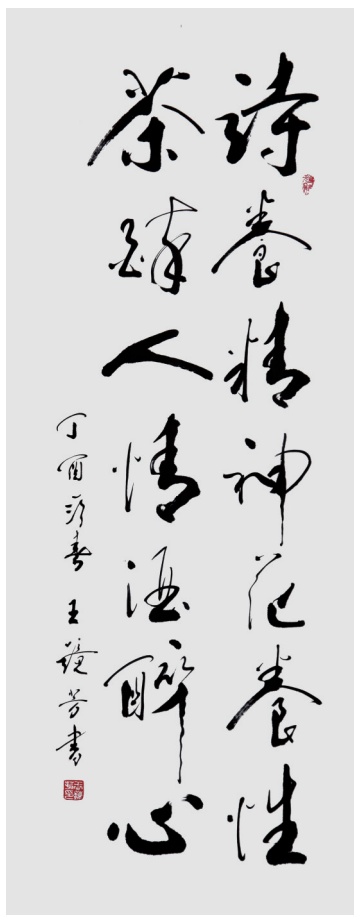 詩養精神花養性
茶醉人情酒醉心
丁酉春王芳書